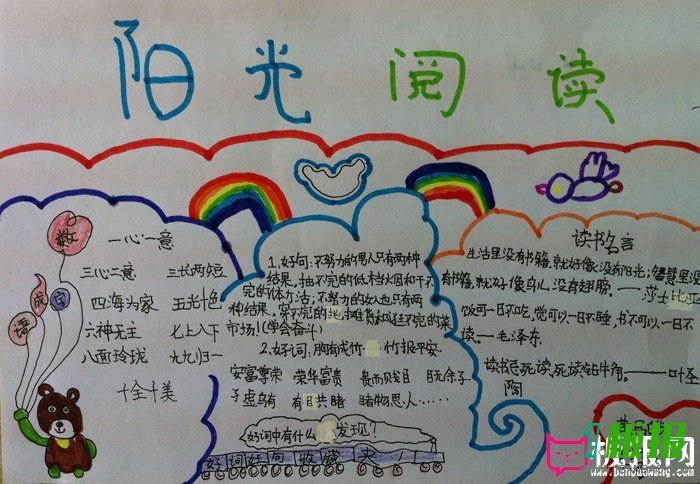 阳光阅读
数
成
字
语
一心一意
三心二意 三长两短
四海为家 五光十色
六神无主 七上八下
八面玲珑 九九归一
十全十美
1.好句:不努力的男人只有两种
结果,抽不完的低档烟和干不
完的体力活;不努力的女人也只有两
种结果,穿不完的地摊货和逛不完的菜
市场!(学会奋斗)
2.好词:胸有成竹 竹报平安
安富尊荣 荣华富贵 贵而贱目 目无余子
子虚乌有 有目共睹 睹物思人……
好词中有什么 发现?
好词好句收获大!
读书名言
生活里没有书籍,就好像没有阳光;智慧里没
有书籍,就好像鸟儿没有翅膀。——莎士比亚
饭可一日不吃,觉可以一日不睡,书不可以一日不
读。——毛泽东
读书忌死读,死读钻牛角。——叶圣
陶
板报网
www.banbaowang.com